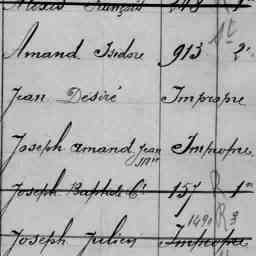 Alexis François 248 R 1er
Amand Isidore 913 2e
Jean Désiré Impropre
Joseph Amand Jean Mie Impropre
Joseph Baptiste Ct 157 R 1er
1490 R
Joseph Julien Impropre